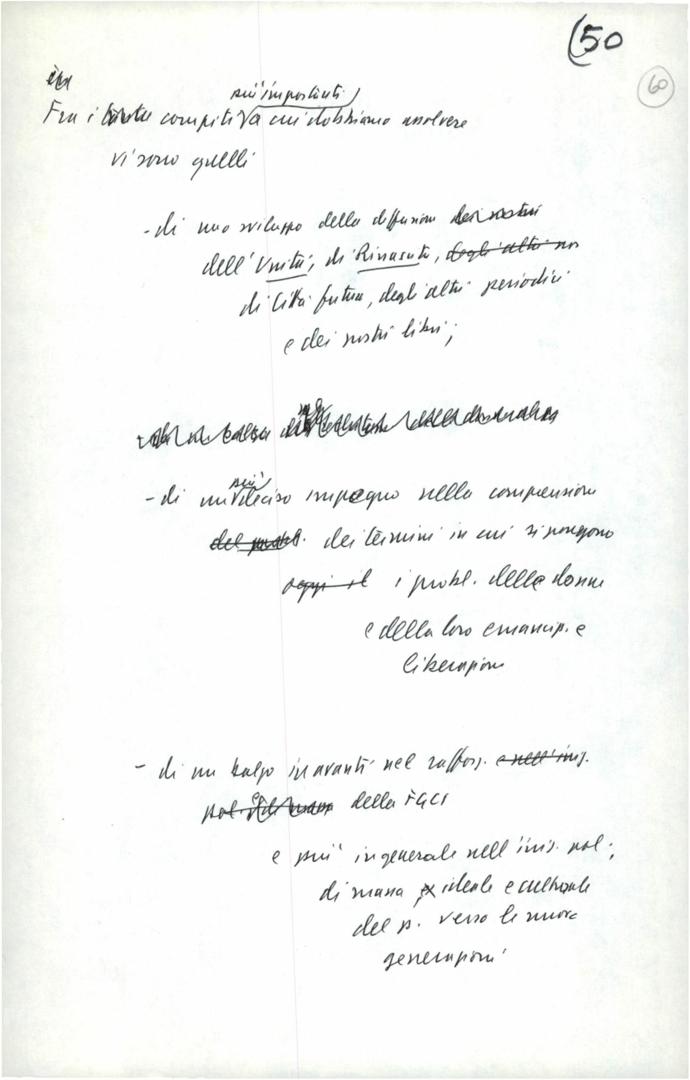 (50
60
più importanti
Fra i compiti a cui dobbiamo assolvere
vi sono quelli
- di uno sviluppo della diffusione dei nostri
dell'Unità, di Rinascita, degli altri
di Città futura, degli altri periodici
e dei nostri libri;
più
- di un deciso impegno nella comprensione
dei termini in cui si pongono
oggi il i probl. delle donne
e della loro emancip. e
liberazione
- di un balzo in avanti nel raffor. e nell'iniz.
pol. della FGCI
e più in generale nell'iniz. pol.,
di massa ideale e culturale
del p. verso le nuove
generazioni